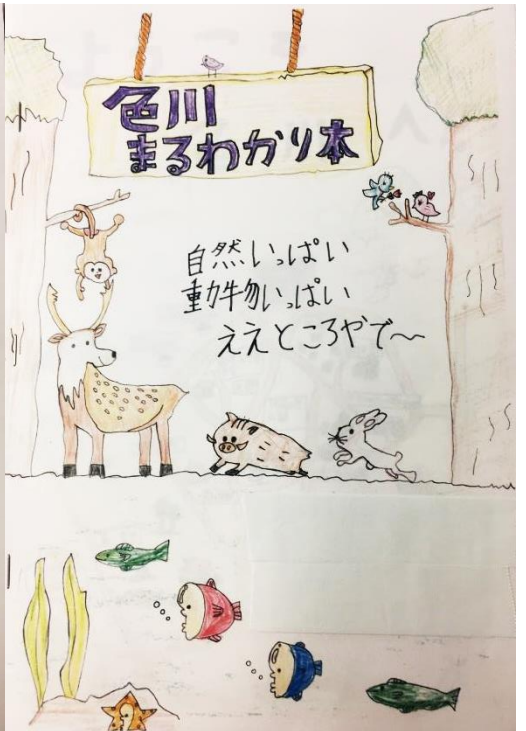 色川
まるわかり本
自然いっぱい
動物いっぱい
ええところやで〜